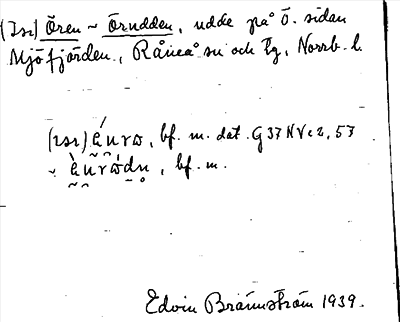 (Isr) Ören ~ Örudden, udde på ö. sidan
Mjöfjärden, Råneå sn och tg, Norrb. l.
bf. m. dat. G37 NV c 2, 53
bf. m.
Edvin Brännström 1939.